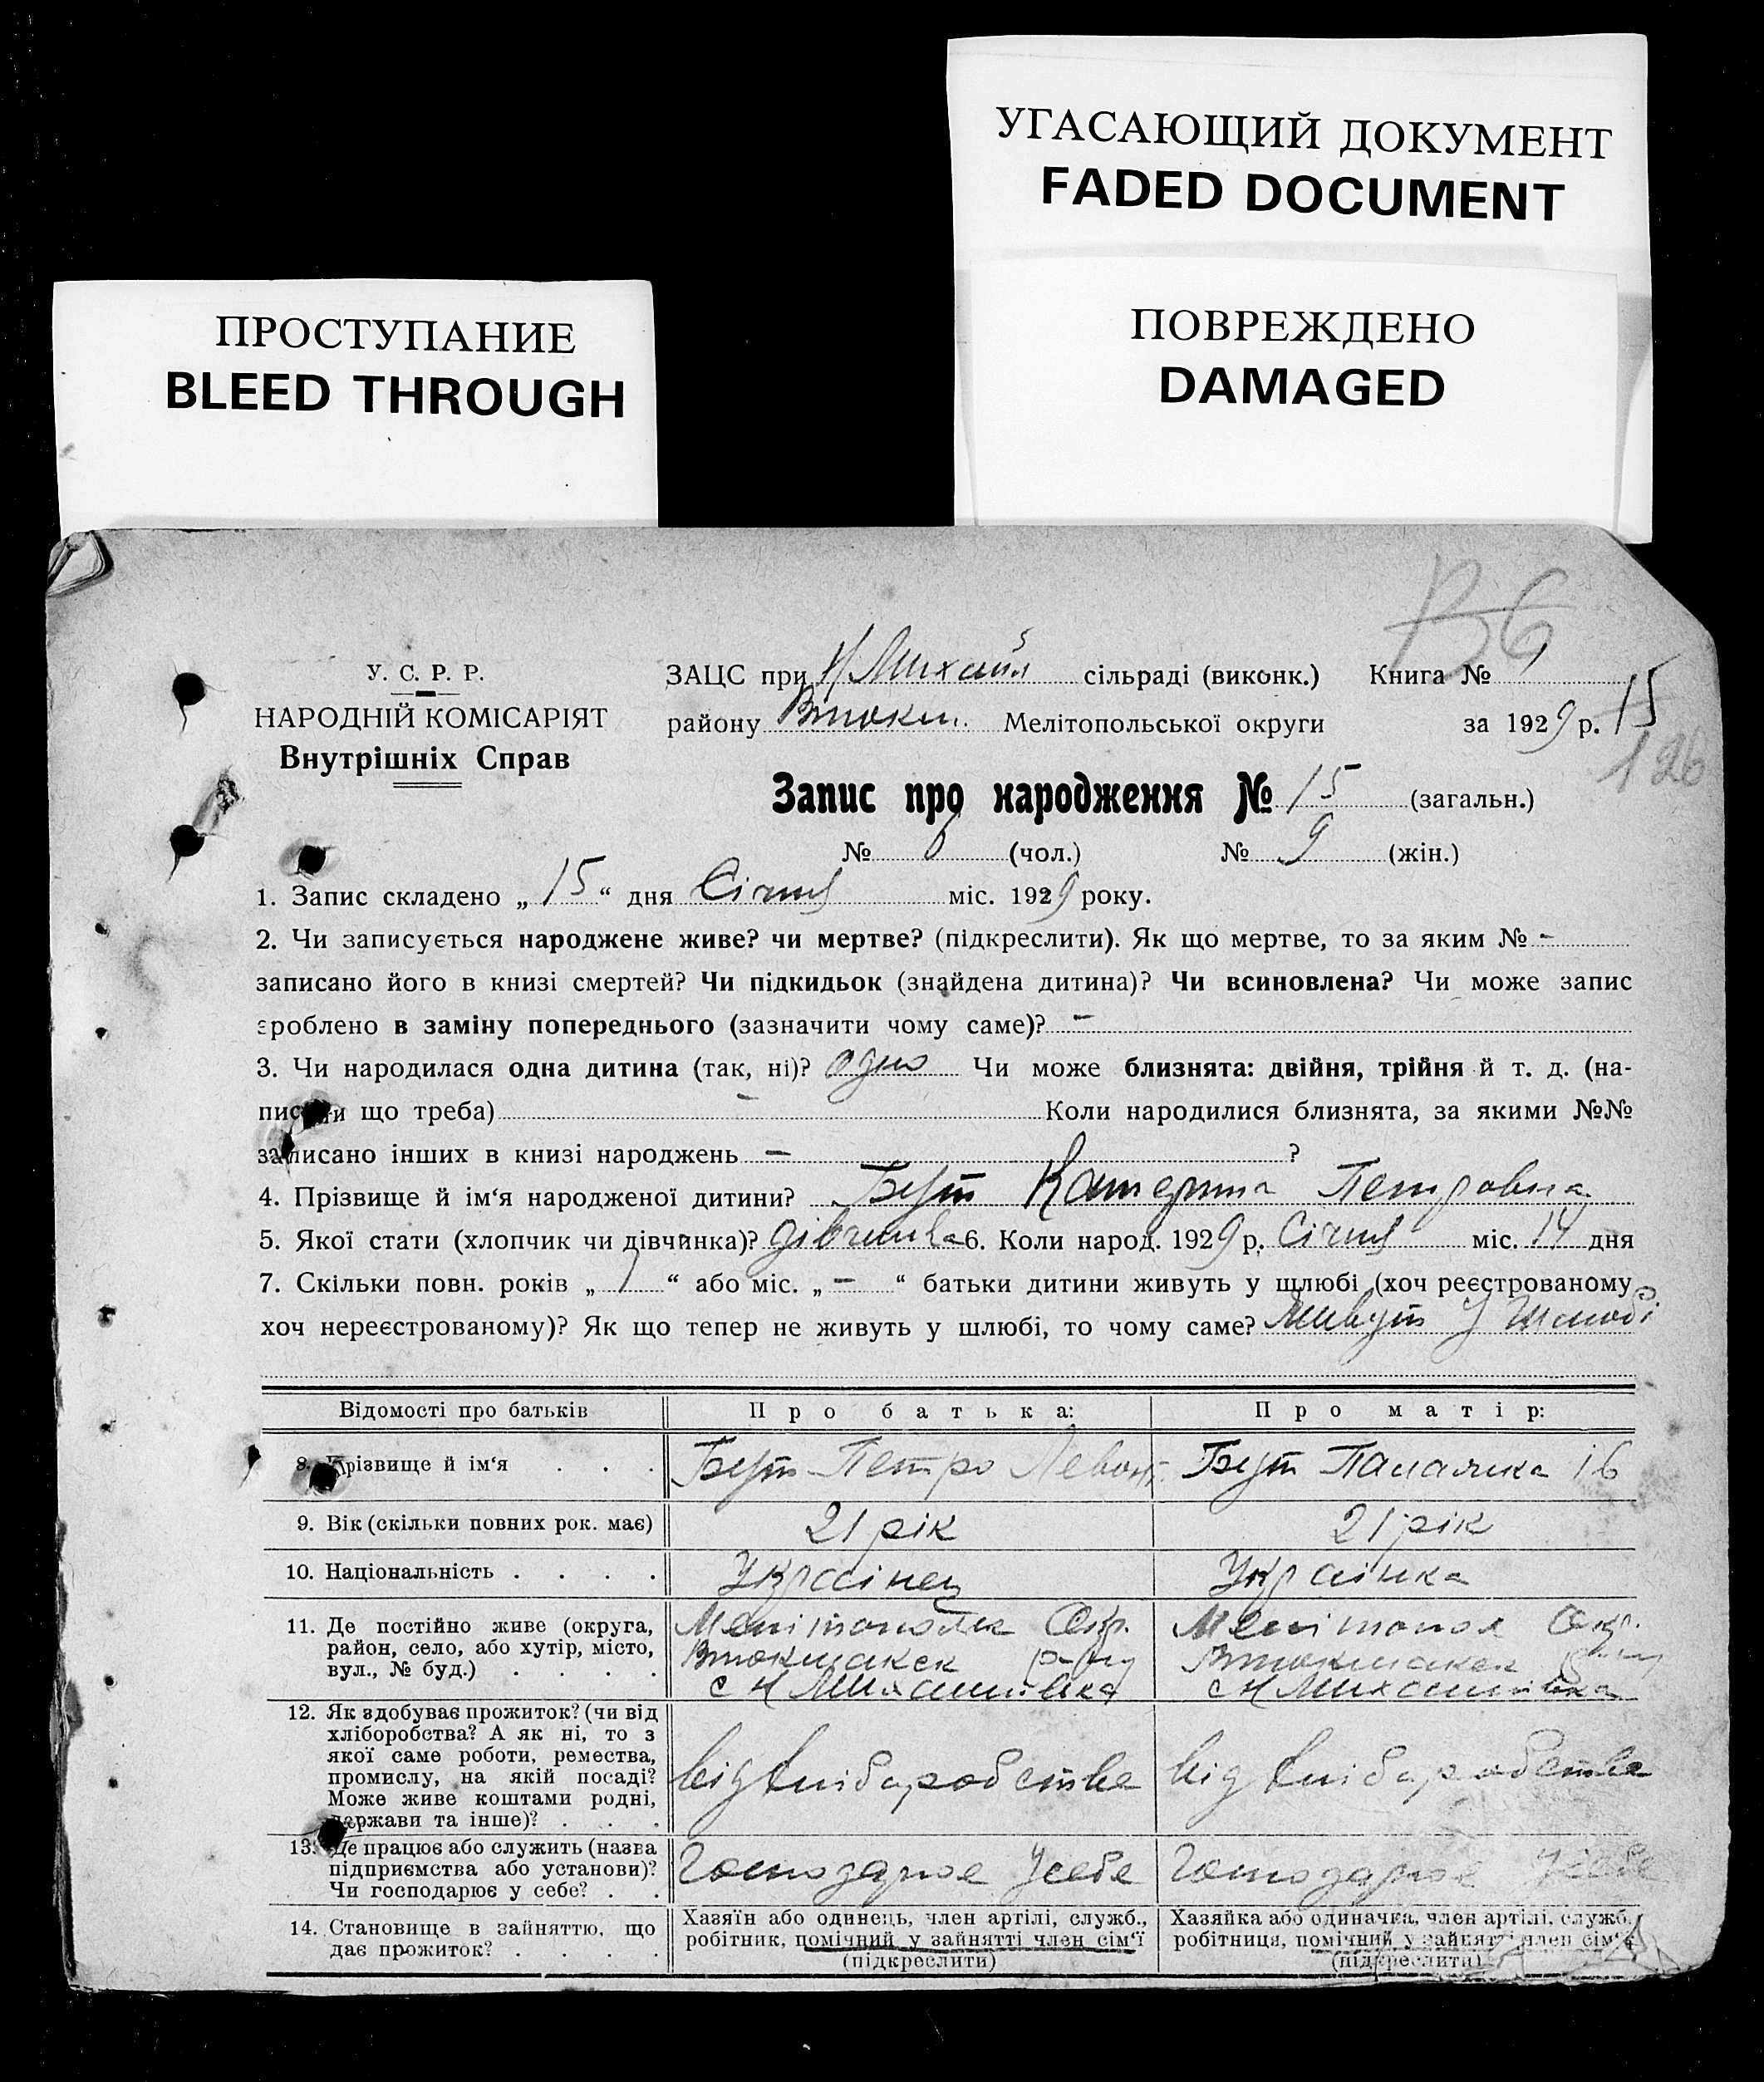 УГАСАЮЩИЙ ДОКУМЕНТ
FADED DOCUMENT
ПРОСТУПАНИЕ
BLEED THROUGH
ПОВРЕЖДЕНО
DAMAGED
У. С. Р. Р.
НАРОДНІЙ КОМІСАРІЯТ
Внутрішніх Справ
ЗАЦС при Н Михайл сільраді (виконк.) Книга № 1
району Втокм. Мелітопольської округи за 1929 р. 15
126
Запис про народження № 15 (загальн.)
№ 6 (чол.) № 9 (жін.)
1. Запис складено „ 15 “ дня Січня міс. 1929 року.
2. Чи записується народжене живе? чи мертве? (підкреслити). Як що мертве, то за яким № -
записано його в книзі смертей? Чи підкидьок (знайдена дитина)? Чи всиновлена? Чи може запис
зроблено в заміну попереднього (зазначити чому саме)? -
3. Чи народилася одна дитина (так, ні)? одно Чи може близнята: двійня, трійня й т. д. (на-
писати що треба) - Коли народилися близнята, за якими №№
записано інших в книзі народжень - ?
4. Прізвище й ім‘я народженої дитини? Бут Катерина Петровна
5. Якої стати (хлопчик чи дівчинка)? дівчинка 6. Коли народ. 1929 р. Січня міс. 14 дня
7. Скільки повн. років „ 1 “ або міс. „ - “ батьки дитини живуть у шлюбі (хоч реєстрованому
хоч нереєстрованому)? Як що тепер не живуть у шлюбі, то чому саме? Живут у Шлюбі
Відомості про батьків Про батька: Про матір:
8. Прізвище й ім‘я . . . Бут Петро Левонт. Бут Палажка
9. Вік (скільки повних рок. має) 21 рік 21 рік
10. Національність . . . . Українец Українка
11. Де постійно живе (округа,
район, село, або хутір, місто,
вул., № буд.) . . . .
Мелітопольск Окр.
Втокмакск р-ну
с Н Михайлівка
Мелітопол Окр.
Втокмакск р-ну
с Н Михайлівка
12. Як здобуває прожиток? (чи від
хліборобства? А як ні, то з
якої саме роботи, ремества,
промислу, на якій посаді?
Може живе коштами родні,
держави та інше)? . . .
від хлібаробства
від хлібаробства
13. Де працює або служить (назва
підприємства або установи)?
Чи господарює у себе? . .
Господарює Усебе
Господарює Усебе
14. Становище в зайняттю, що
дає прожиток? . . . .
Хазяїн або одинець, член артілі, служб.,
робітник, помічний у зайнятті член сім‘ї
(підкреслити)
Хазяйка або одиначка, член артілі, служб.
робітниця, помічний у зайнятті член сім‘ї
(підкреслити)